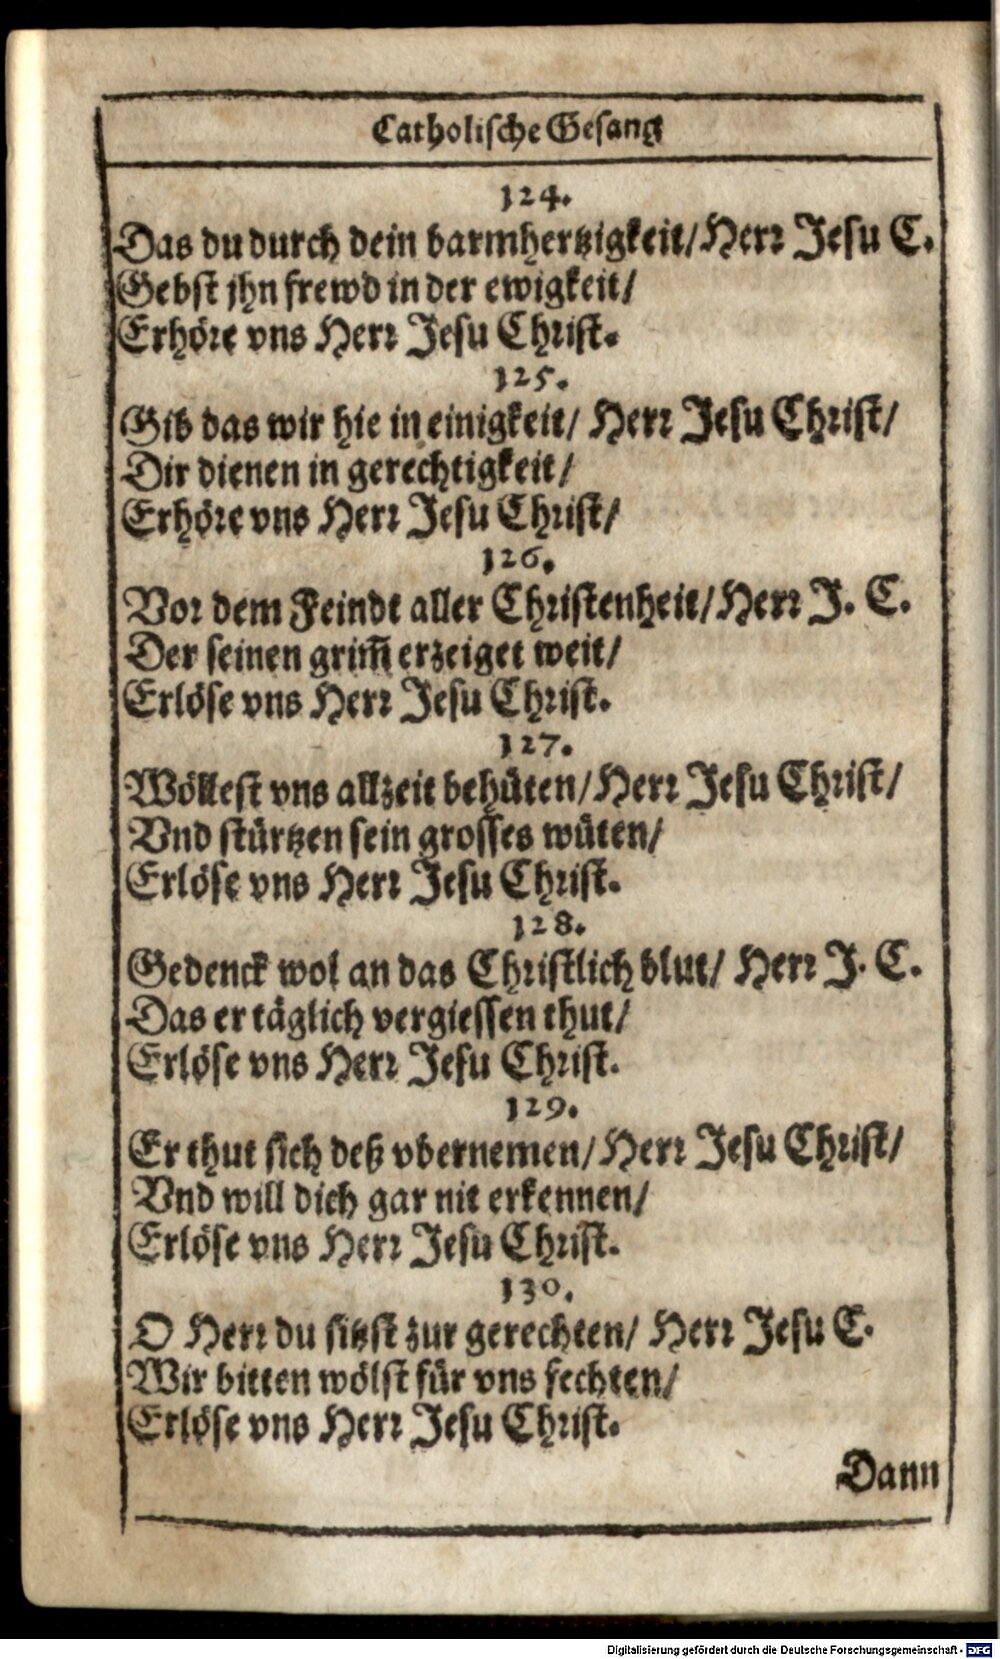 Catholische Gesang
124.
Das du durch dein barmhertzigkeit/Herr Jesu C.
Gebst jhn frewd in der ewigkeit/
Erhöre vns Herr Jesu Christ.
125.
Gib das wir hie in einigkeit/ Herr Jesu Christ/
Dir dienen in gerechtigkeit/
Erhöre vns Herr Jesu Christ/
126.
Vor dem Feindt aller Christenheit/Herr J. C.
Der seinen grim̃ erzeiget weit/
Erlöse vns Herr Jesu Christ.
127.
Wöllest vns allzeit behüten/Herr Jesu Christ/
Vnd stürtzen sein grosses wüten/
Erlöse vns Herr Jesu Christ.
128.
Gedenck wol an das Christlich blut/ Herr J. C.
Das er täglich vergiessen thut/
Erlöse vns Herr Jesu Christ.
129.
Er thut sich deß vbernemen/Herr Jesu Christ/
Vnd will dich gar nit erkennen/
Erlöse vns Herr Jesu Christ.
130.
O Herr du sitzst zur gerechten/ Herr Jesu C.
Wir bitten wölst für vns fechten/
Erlöse vns Herr Jesu Christ.
Dann
Digitalisierung gefördert durch die Deutsche Forschungsgemeinschaft - DFG